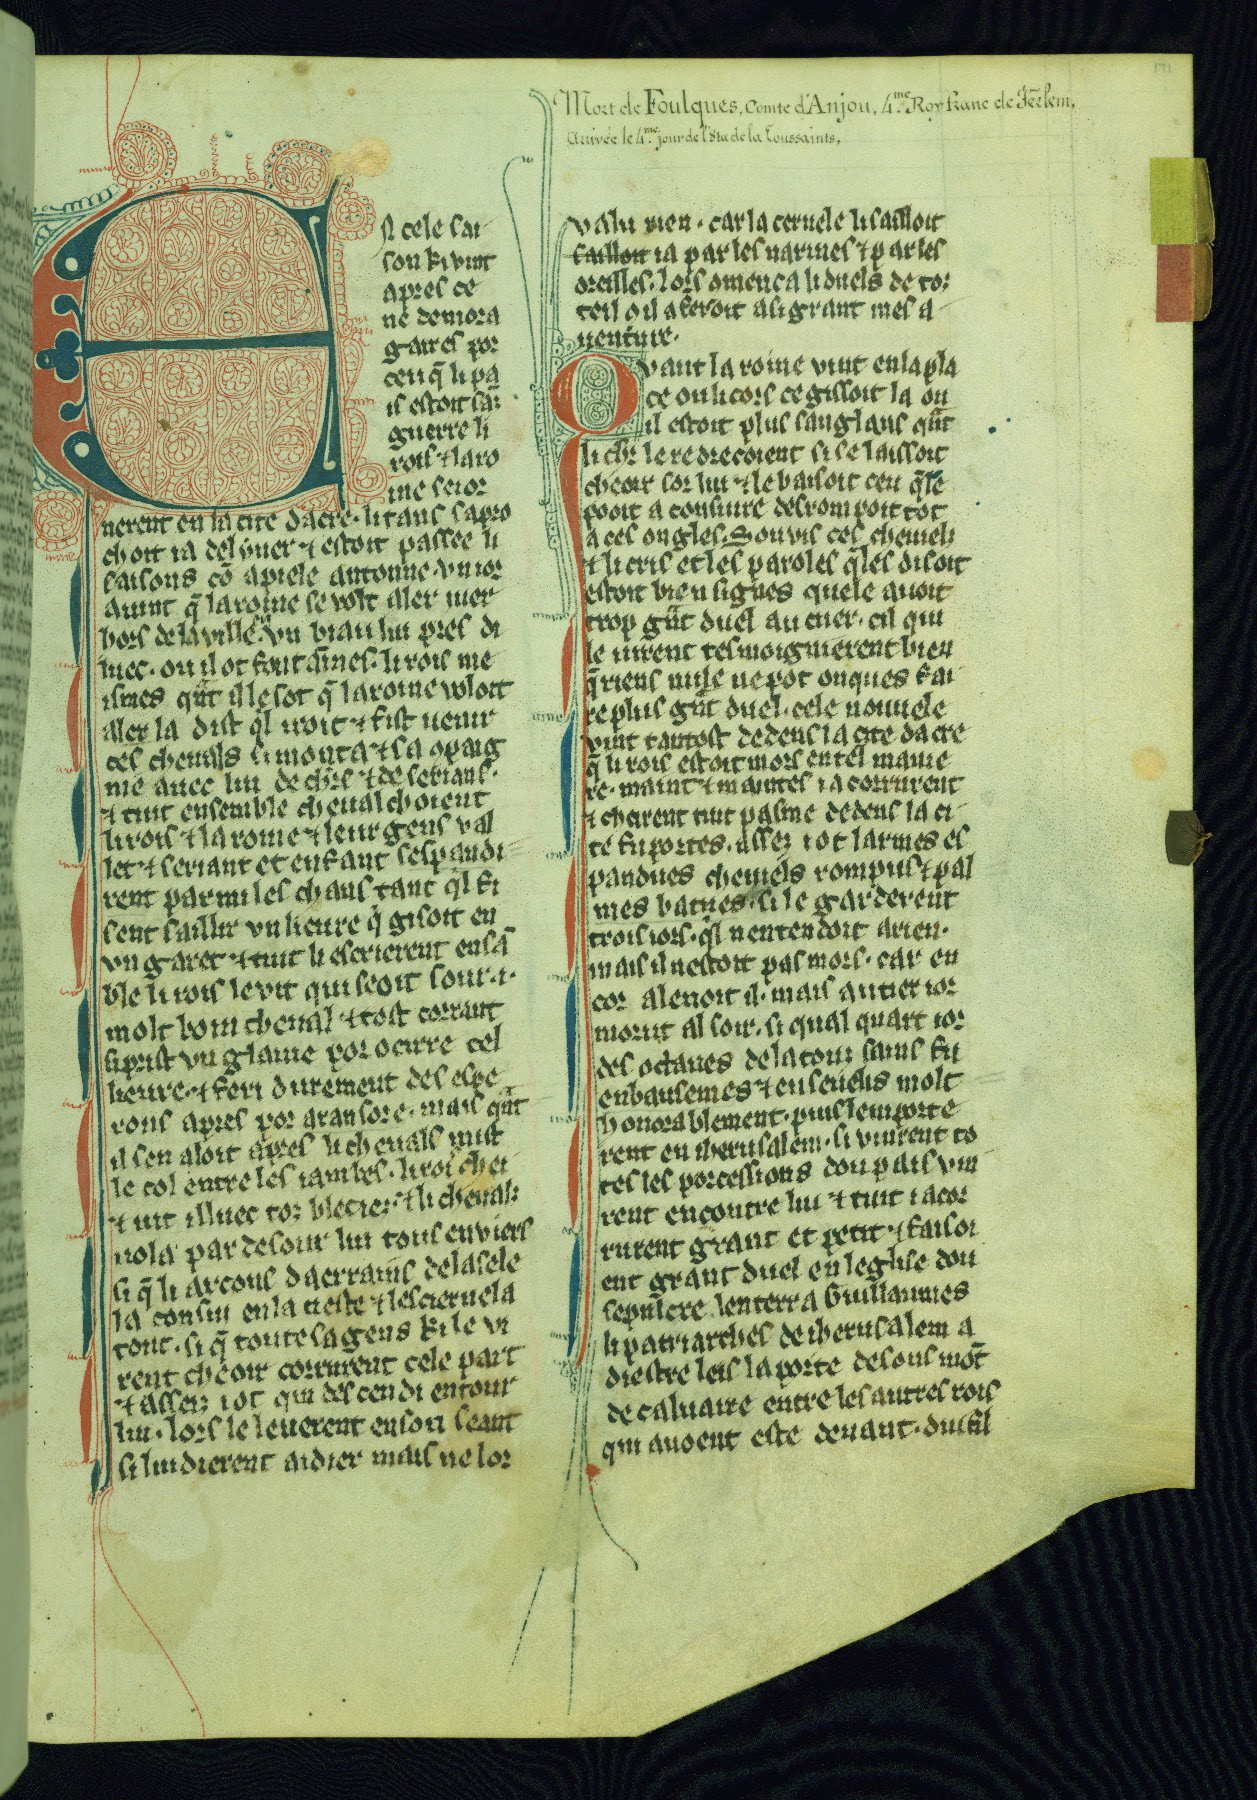 171
Mort de Foulques, Comte d'Anjou, 4.me Roy franc de Jérlem,
Arrivée le 4.me jour de l'8ta de la Toussaints,
EN cele sai
son ki vint
apres ce
ne demora
gaires por
ceu q̃ li pa
is estoit sãz
guerre li
rois ⁊ la ro
ine seior
nerent en la cite dacre. li tans sapro
choit ia del yuer ⁊ estoit passee li
saisons cõ apiele autonne. vn ior
auint q̃ la roine se volt aler iuer
hors de la ville. a vn biau liu pres di
luec. ou il ot fontaines. li rois me
ismes qũt il le sot q̃ la roine voloit
aler la dist ql iroit ⁊ fist uenir
ces cheuals si monta ⁊ sa cõpaig
nie auec lui de chrs ⁊ de serians.
⁊ tuit ensemble cheualchoient
li rois ⁊ la roine ⁊ leur gens val
let ⁊ seriant et enfant sespandi
rent parmi les chans tant ql fi
sent saillir vn lieure q̃ gisoit en
vn garet ⁊ tuit li escrierent ensã
ble li rois le vit qui seoit sour .i.
molt boin cheual ⁊ tost corrant
si prist vn glaiue por ocirre cel
lieure. ⁊ feri durement des espe
rons apres por ataindre. mais qũt
il sen aloit apres li cheuals mist
le col entre les iambes. li roi chei
⁊ uit illuec toz bleciez. ⁊ li cheualz
uola par desour lui tous enviers
si q̃ li arcons daerrains de la sele
la consiu en la tieste ⁊ lescieruela
tout. si q̃ toute sa gens ki le vi
rent cheoir corrurent cele part
⁊ assez i ot qui descendi entour
lui. lors le leuerent en son seant
si lui dierent aidier mais ne lor
valu rien. car la ceruele li sailloit
sailloit ia par les narines ⁊ par les
oreilles. lors comenca li duels de to:
ceil o il aferoit a si grant mes a
uenture.
Qvant la roine vint en la pla
ce ou li cors ce gissoit la ou
il estoit plus sanglans qũt
li chr le redrecoient si se laissoit
cheoir sor lui ⁊ le baisoit ceu q̃le
pooit a consiure desrompoit tot
a ces ongles. Son vis ces cheuels
⁊ li cris et les paroles q̃les disoit
estoit bien signes quele auoit
trop gũt duel au cuer. cil qui
le uirent tesmoignierent bien
q̃ riens nule ne pot onques fai
re plus gũt duel. cele nouuele
vint tantost dedens la cite dacre
q̃ li rois estoit mors en tel manie
re. maint ⁊ maintes i a corrurent
⁊ cheirent tuit pasme dedens la ci
te fu portes. assez i ot larmes es
pandues cheuels rompus ⁊ pal
mes batues. si le garderent
trois iors. ql nentendoit a rien.
mais il nestoit pas mors. car en
cor alenoit il. mais au tier ior
morut al soir. si qual quart ior
des octaues de la tout sains fu
enbausemes ⁊ enseuelis molt
honorablement. puis lemporte
rent en iherusalem. si vinrent to
tes les porcessions dou pais vin
rent encontre lui ⁊ tuit i acor
rurent grant et petit ⁊ faisoi
ent grant duel en leglise dou
sepulcre lenterra Guillaumes
li patriarches de iherusalem a
diestre leis la porte desous mõt
de caluaire entre les autres rois
qui auoent este deuant. dui fil